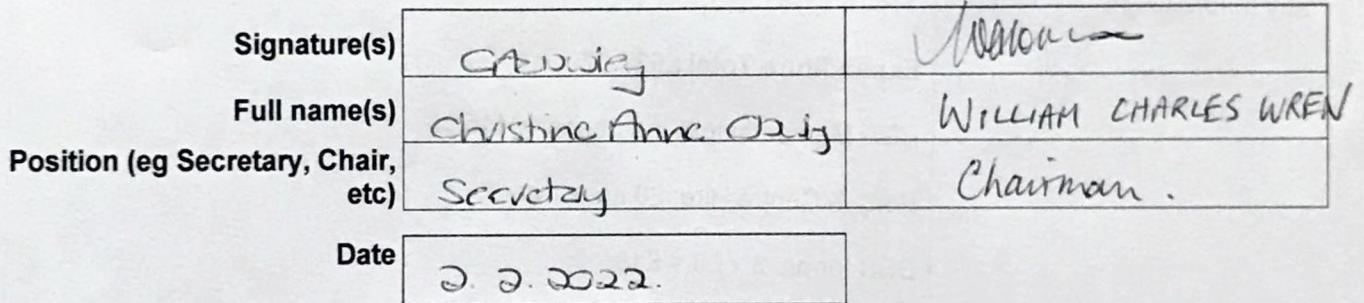 Signature(s)
Full name(s) Christine Anne WILLIAM CHARLES WREN
Position (eg Secretary, Chair,
etc) Secretary Chairman.
Date 2.2.2022.